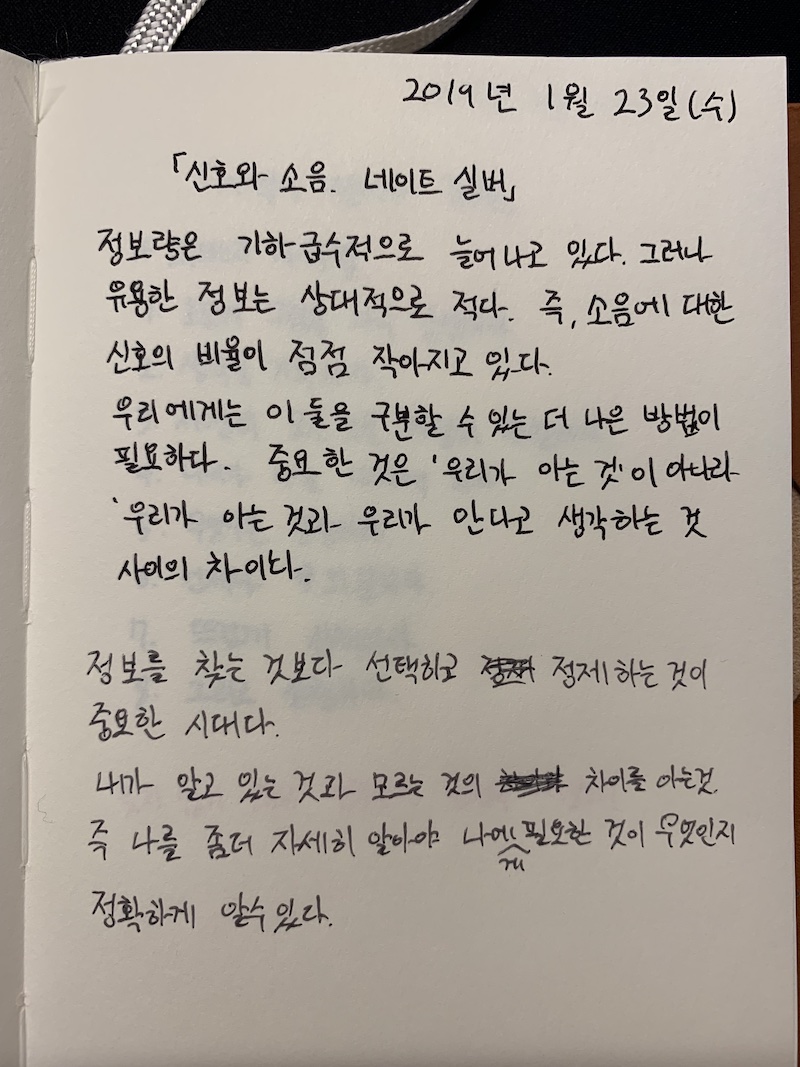 2019년 1월 23일(수)
「신호와 소음. 네이트 실버」
정보량은 기하급수적으로 늘어나고 있다. 그러나
유용한 정보는 상대적으로 적다. 즉, 소음에 대한
신호의 비율이 점점 작아지고 있다.
우리에게는 이 둘을 구분할 수 있는 더 나은 방법이
필요하다. 중요한 것은 '우리가 아는 것'이 아니라
'우리가 아는 것과 우리가 안다고 생각하는 것
사이의 차이다.
정보를 찾는 것보다 선택하고 정제하는 것이
중요한 시대다.
내가 알고 있는 것과 모르는 것의 차이를 아는것.
즉 나를 좀더 자세히 알아야 나에게 필요한 것이 무엇인지
정확하게 알수 있다.